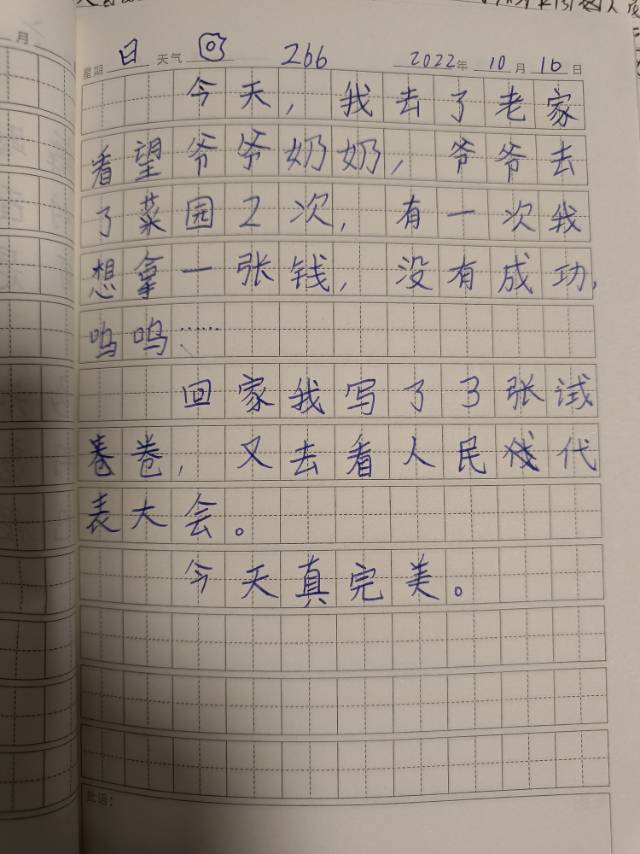 月
星期 日 天气 266 2022年 10月 16日
今天，我去了老家
看望爷爷奶奶，爷爷去
了菜园2次，有一次我
想拿一张钱，没有成功，
呜呜……
回家我写了3张试
卷，又去看人民代
表大会。
今天真完美。
批语：